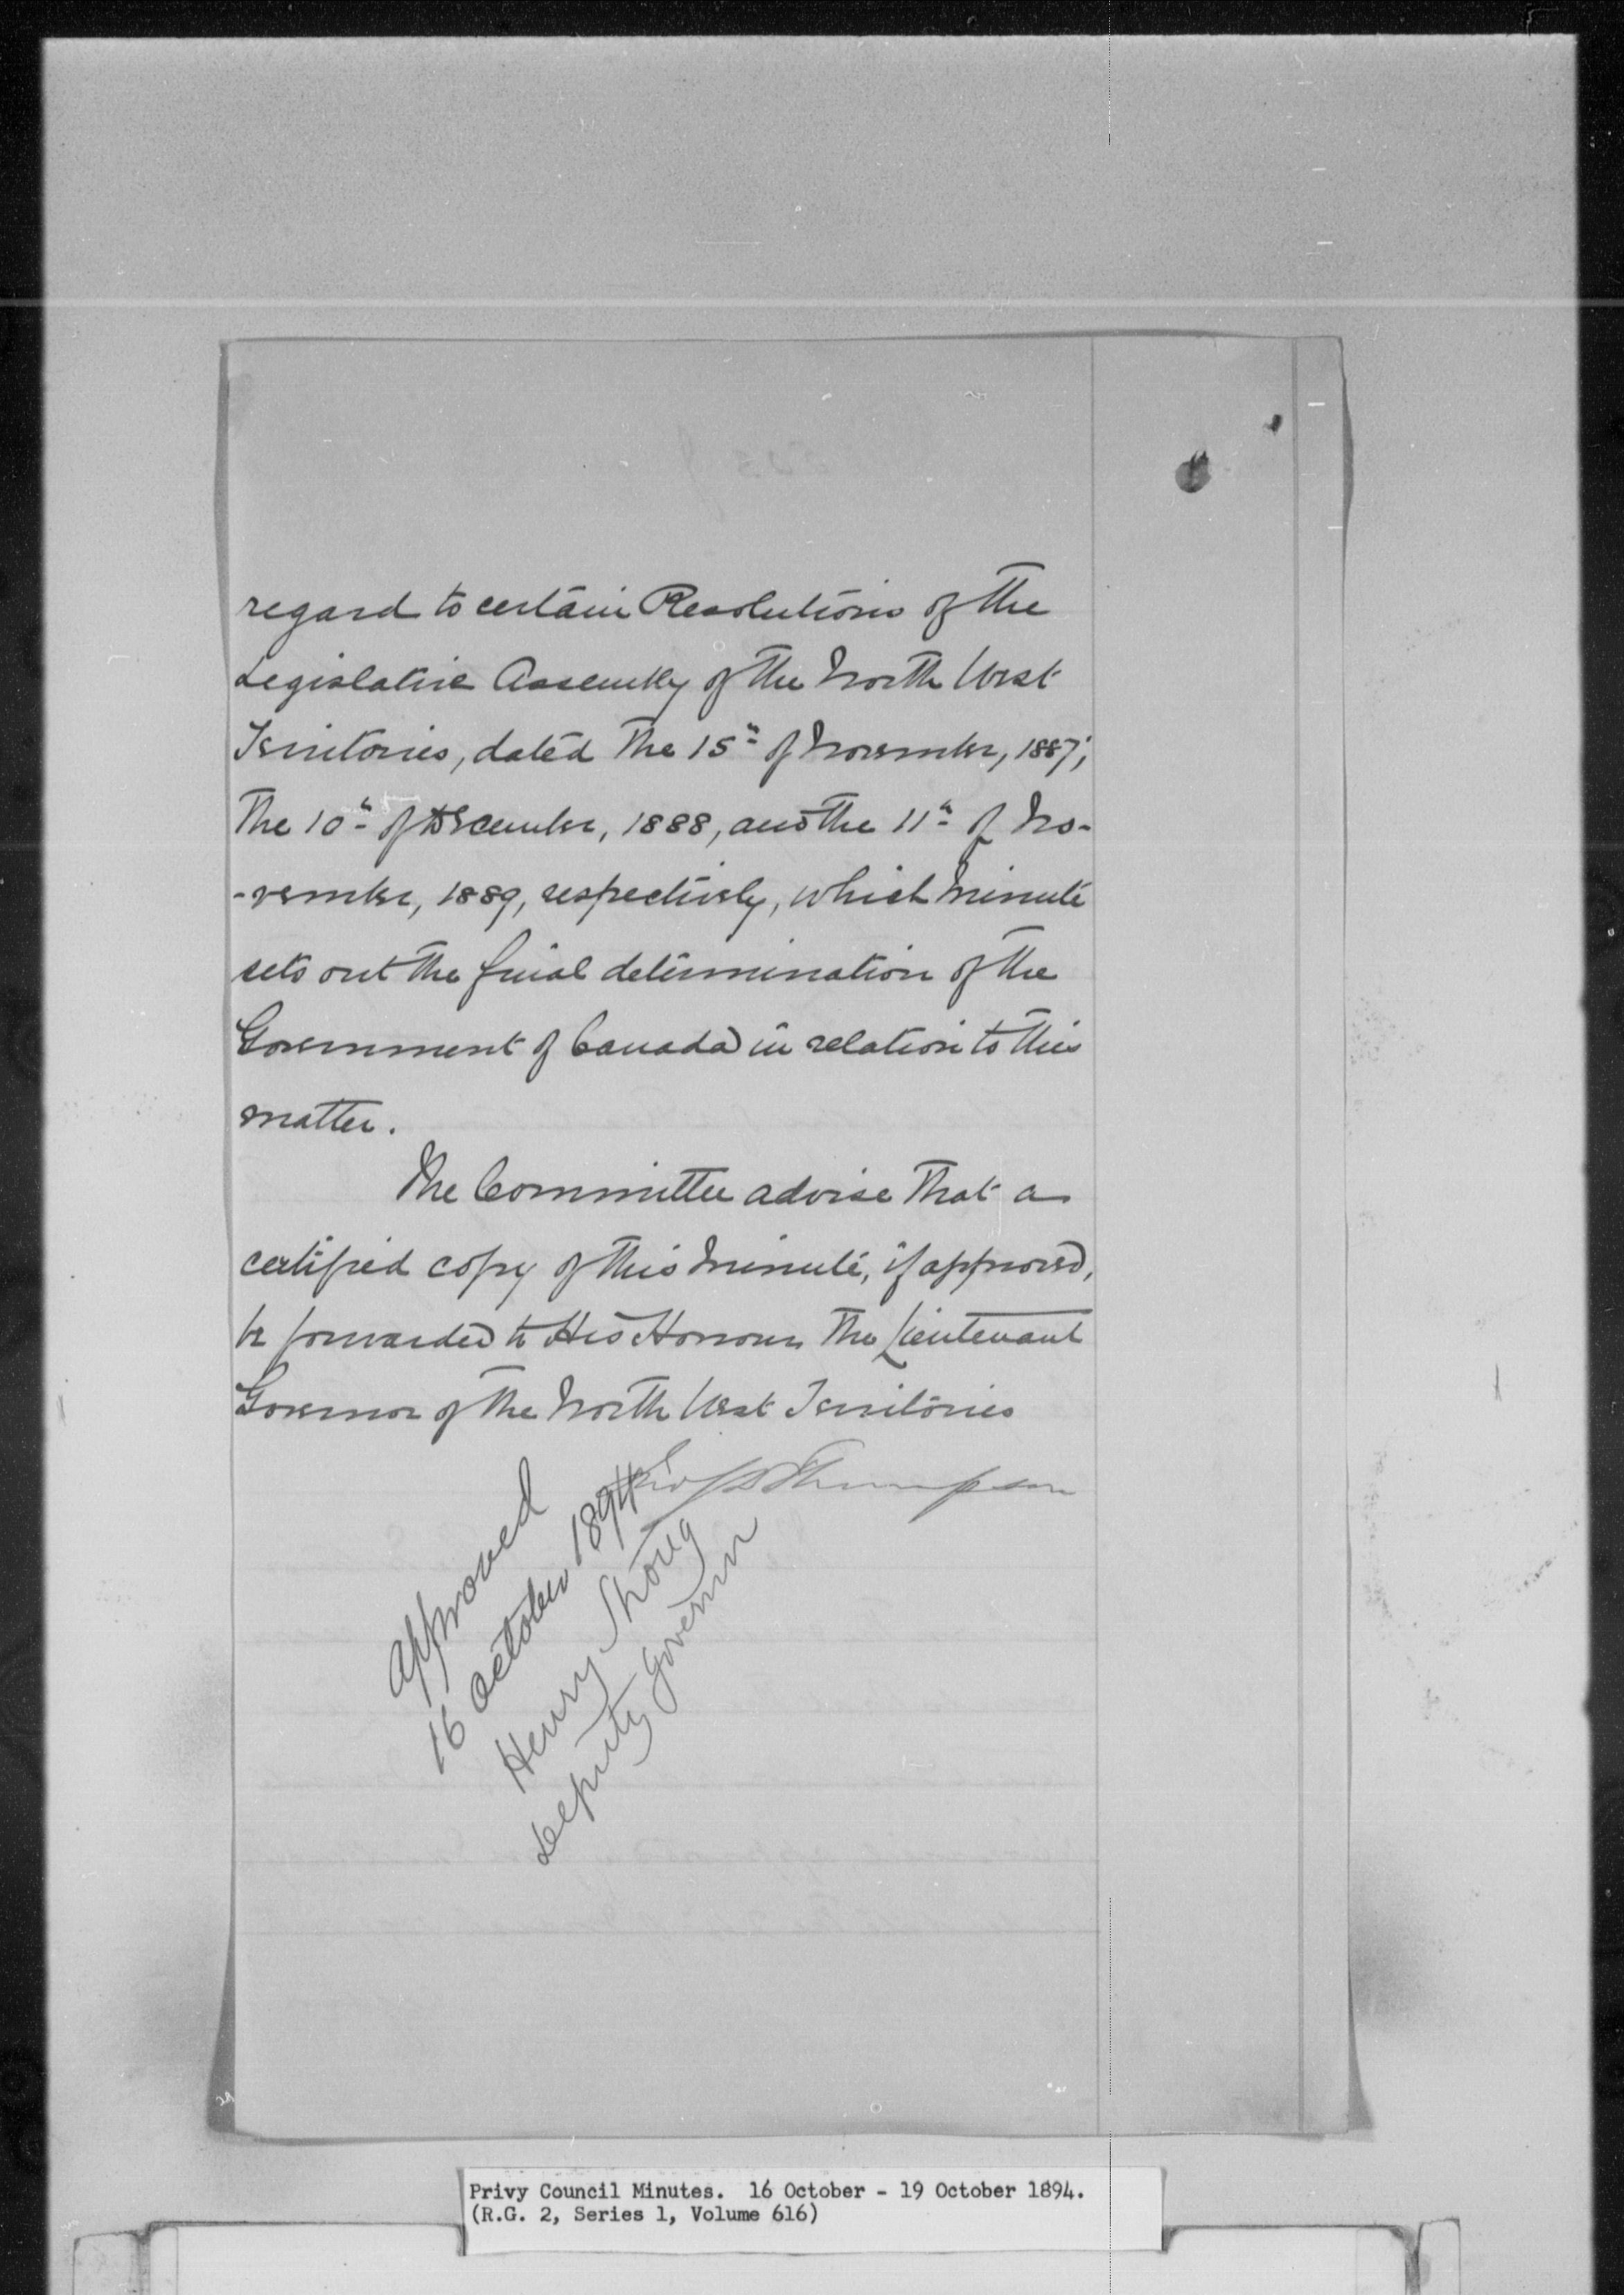 regard to certain Resolutions of the
Legislative Assembly of the North West
Territories, dated the 15th of November, 1887;
the 10th of December, 1888, and the 11th of No-
-vember, 1889, respectively, which Minute
sets out the final determination of the
Government of Canada in relation to this
matter.
The Committee advise that a
certified copy of this Minute, if approved,
be forwarded to His Honour the Lieutenant
Governor of the North West Territories
Jno S D Thompson
Approved
16 October 1894
Henry Strong
Deputy Governor
Privy Council Minutes. 16 October - 19 October 1894.
(R.G. 2, Series 1, Volume 616)